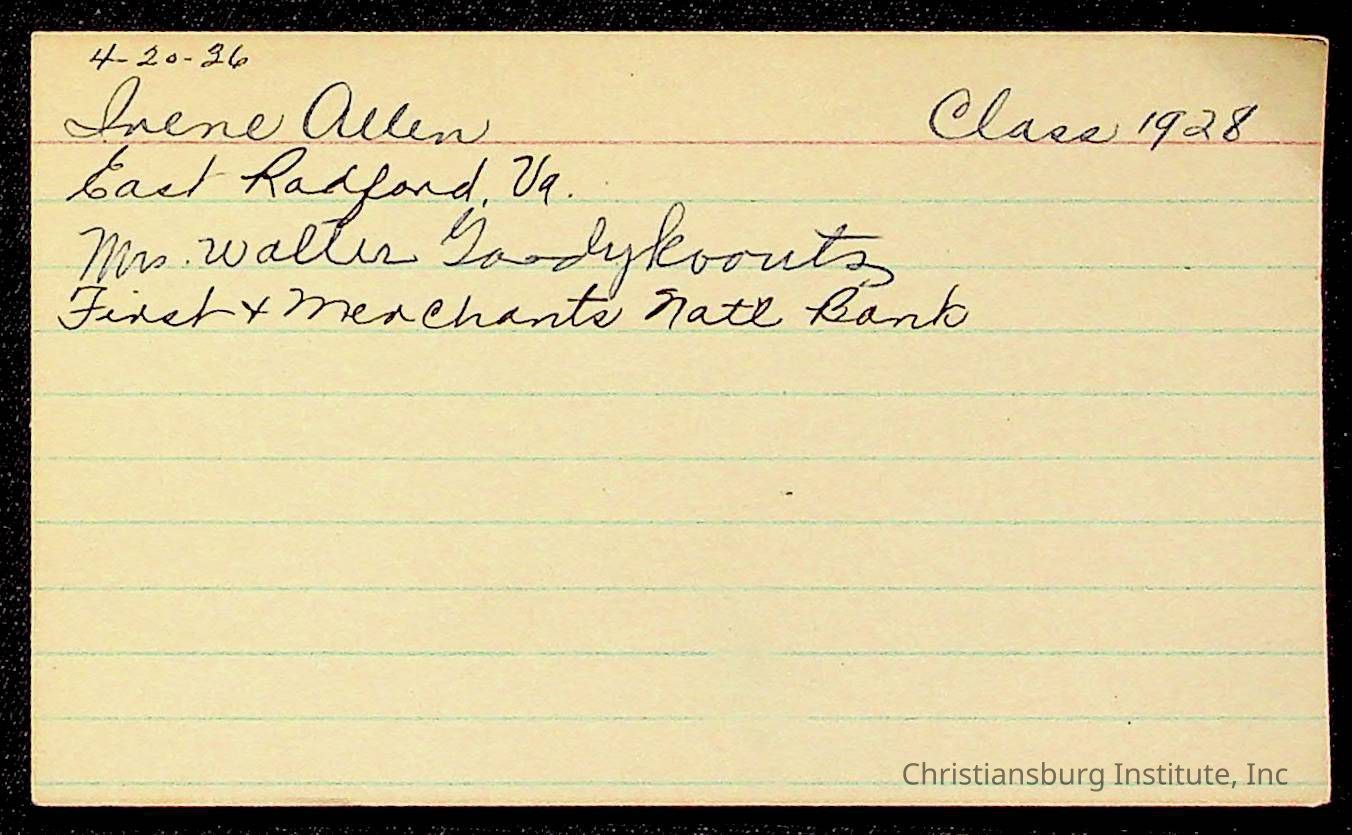 4-20-36
Irene Allen Class 1928
East Radford, Va.
Mrs. Walter Goodykoontz
First & Merchants Natl Bank
Christiansburg Institute, Inc